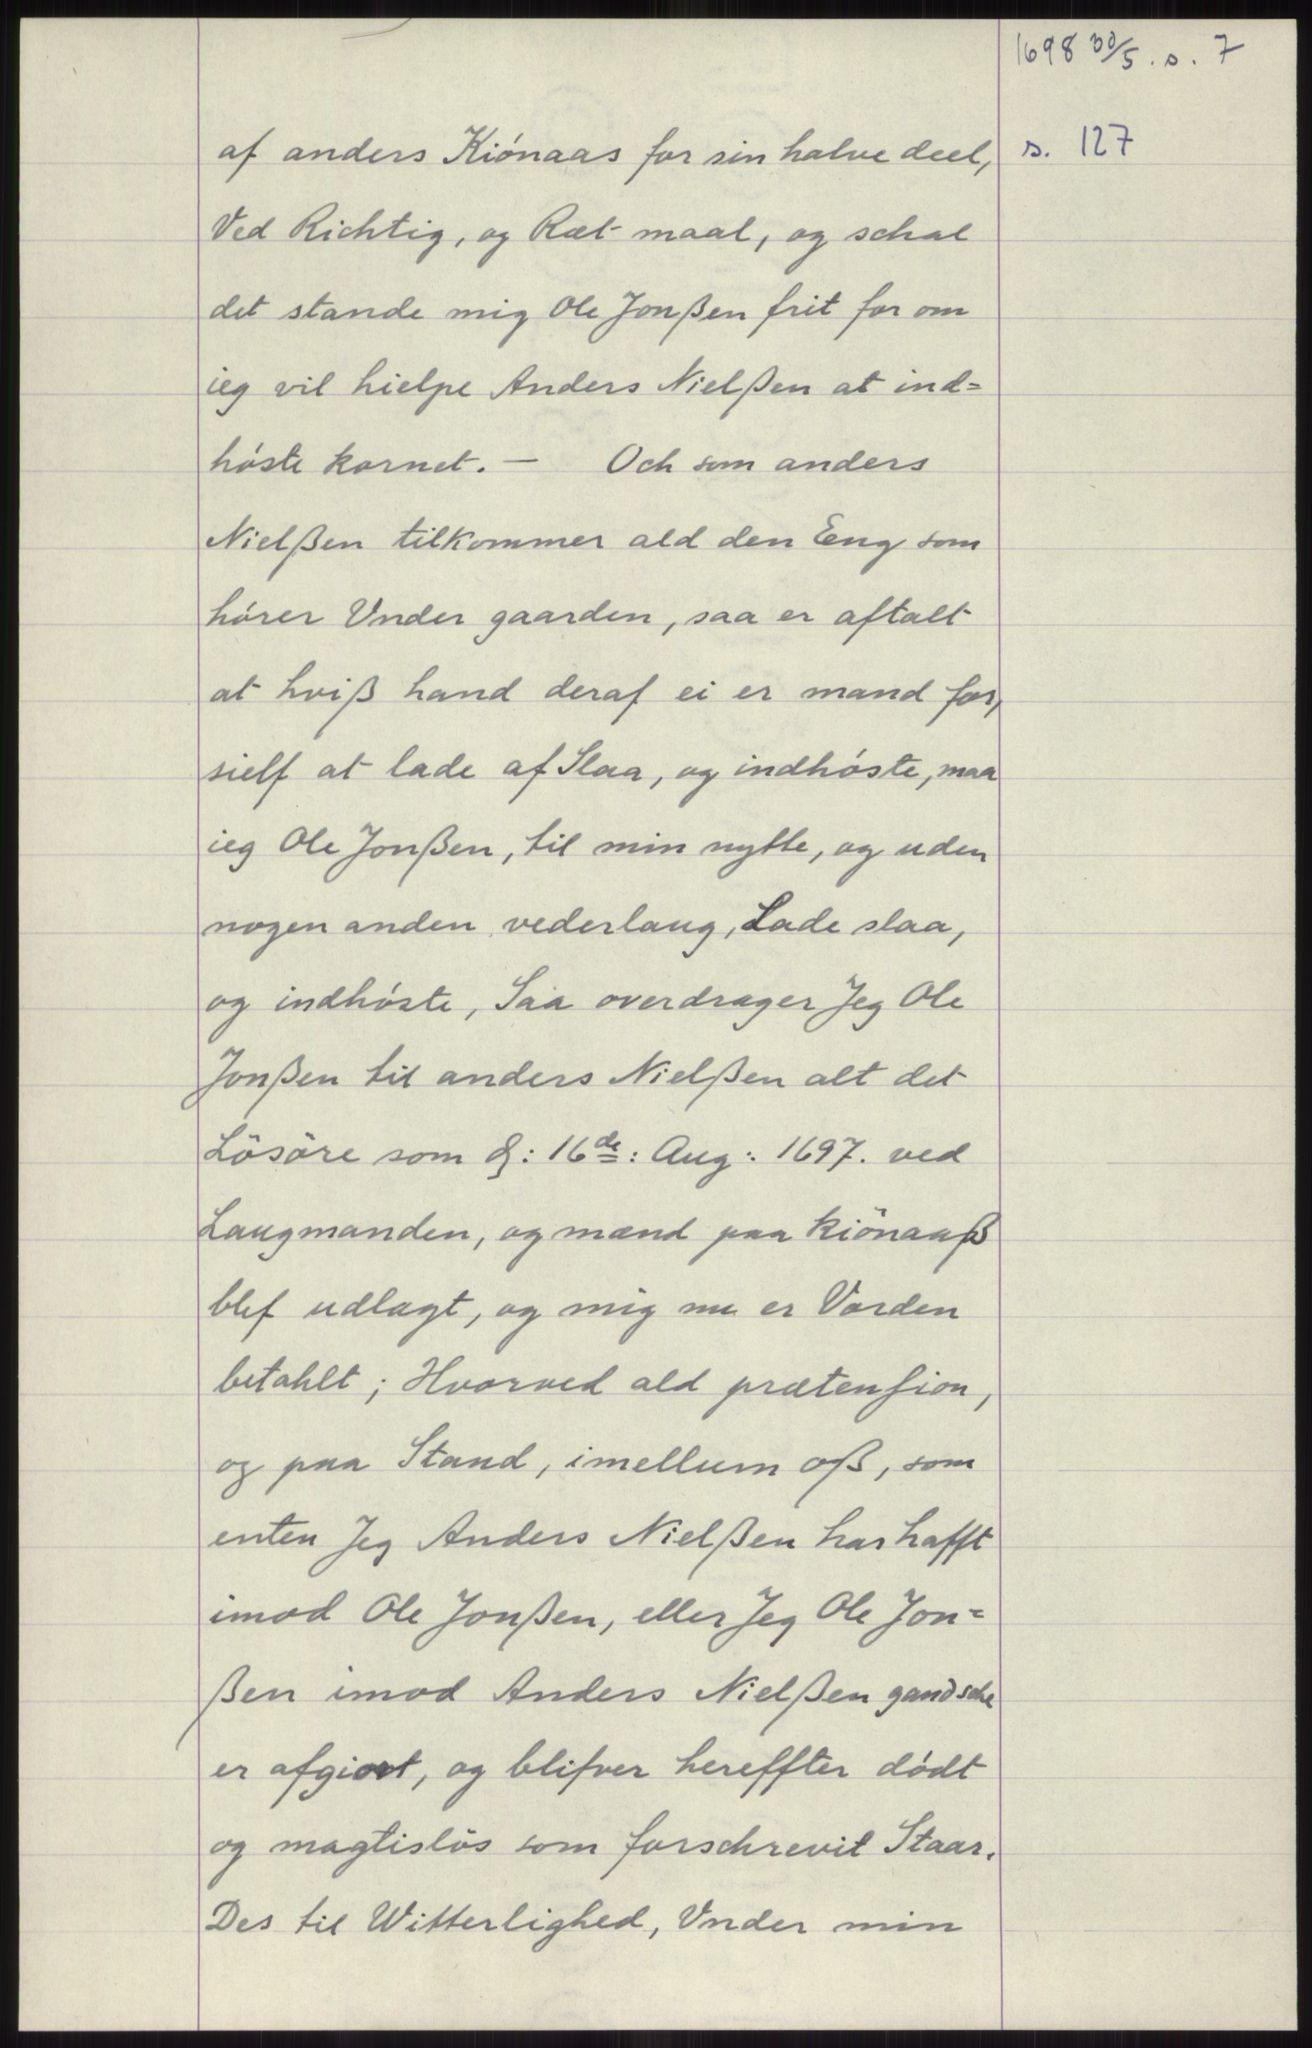 1698 30/5. s. 7
s. 127
af anders Kiónaas for sin halve deel,
Ved Richtig, og Ræt maal, og schal
det stande mig Ole Jonßen frit for om
ieg vil hielpe Anders Nielßen at ind=
hóste kornet. — Och som anders
Nielßen tilkommer ald den Eng som
hórer Vnder gaarden, saa er aftalt
at hviß hand deraf ei er mand for,
sielf at lade af Slaa, og indhóste, maa
ieg Ole Jonßen, til min nytte, og uden
nogen anden vederlaug, Lade slaa,
og indhóste, Saa overdrager Jeg Ole
Jonßen til anders Nielßen alt det
Lösöre som d: 16de: Aug: 1697. ved
Laugmanden, og mænd paa kiönaaß
blef udlagt, og mig nu er Vorden
betahlt; Hvorved ald prætension,
og paa Stand, imellum oß, som
enten Jeg Anders Nielßen har hafft
imod Ole Jonßen, eller Jeg Ole Jon=
ßen imod Anders Nielßen gandsche
er afgiort, og blifver hereffter dódt
og magtislös som forschrevit Staar.
Des til Witterlighed, Vnder min